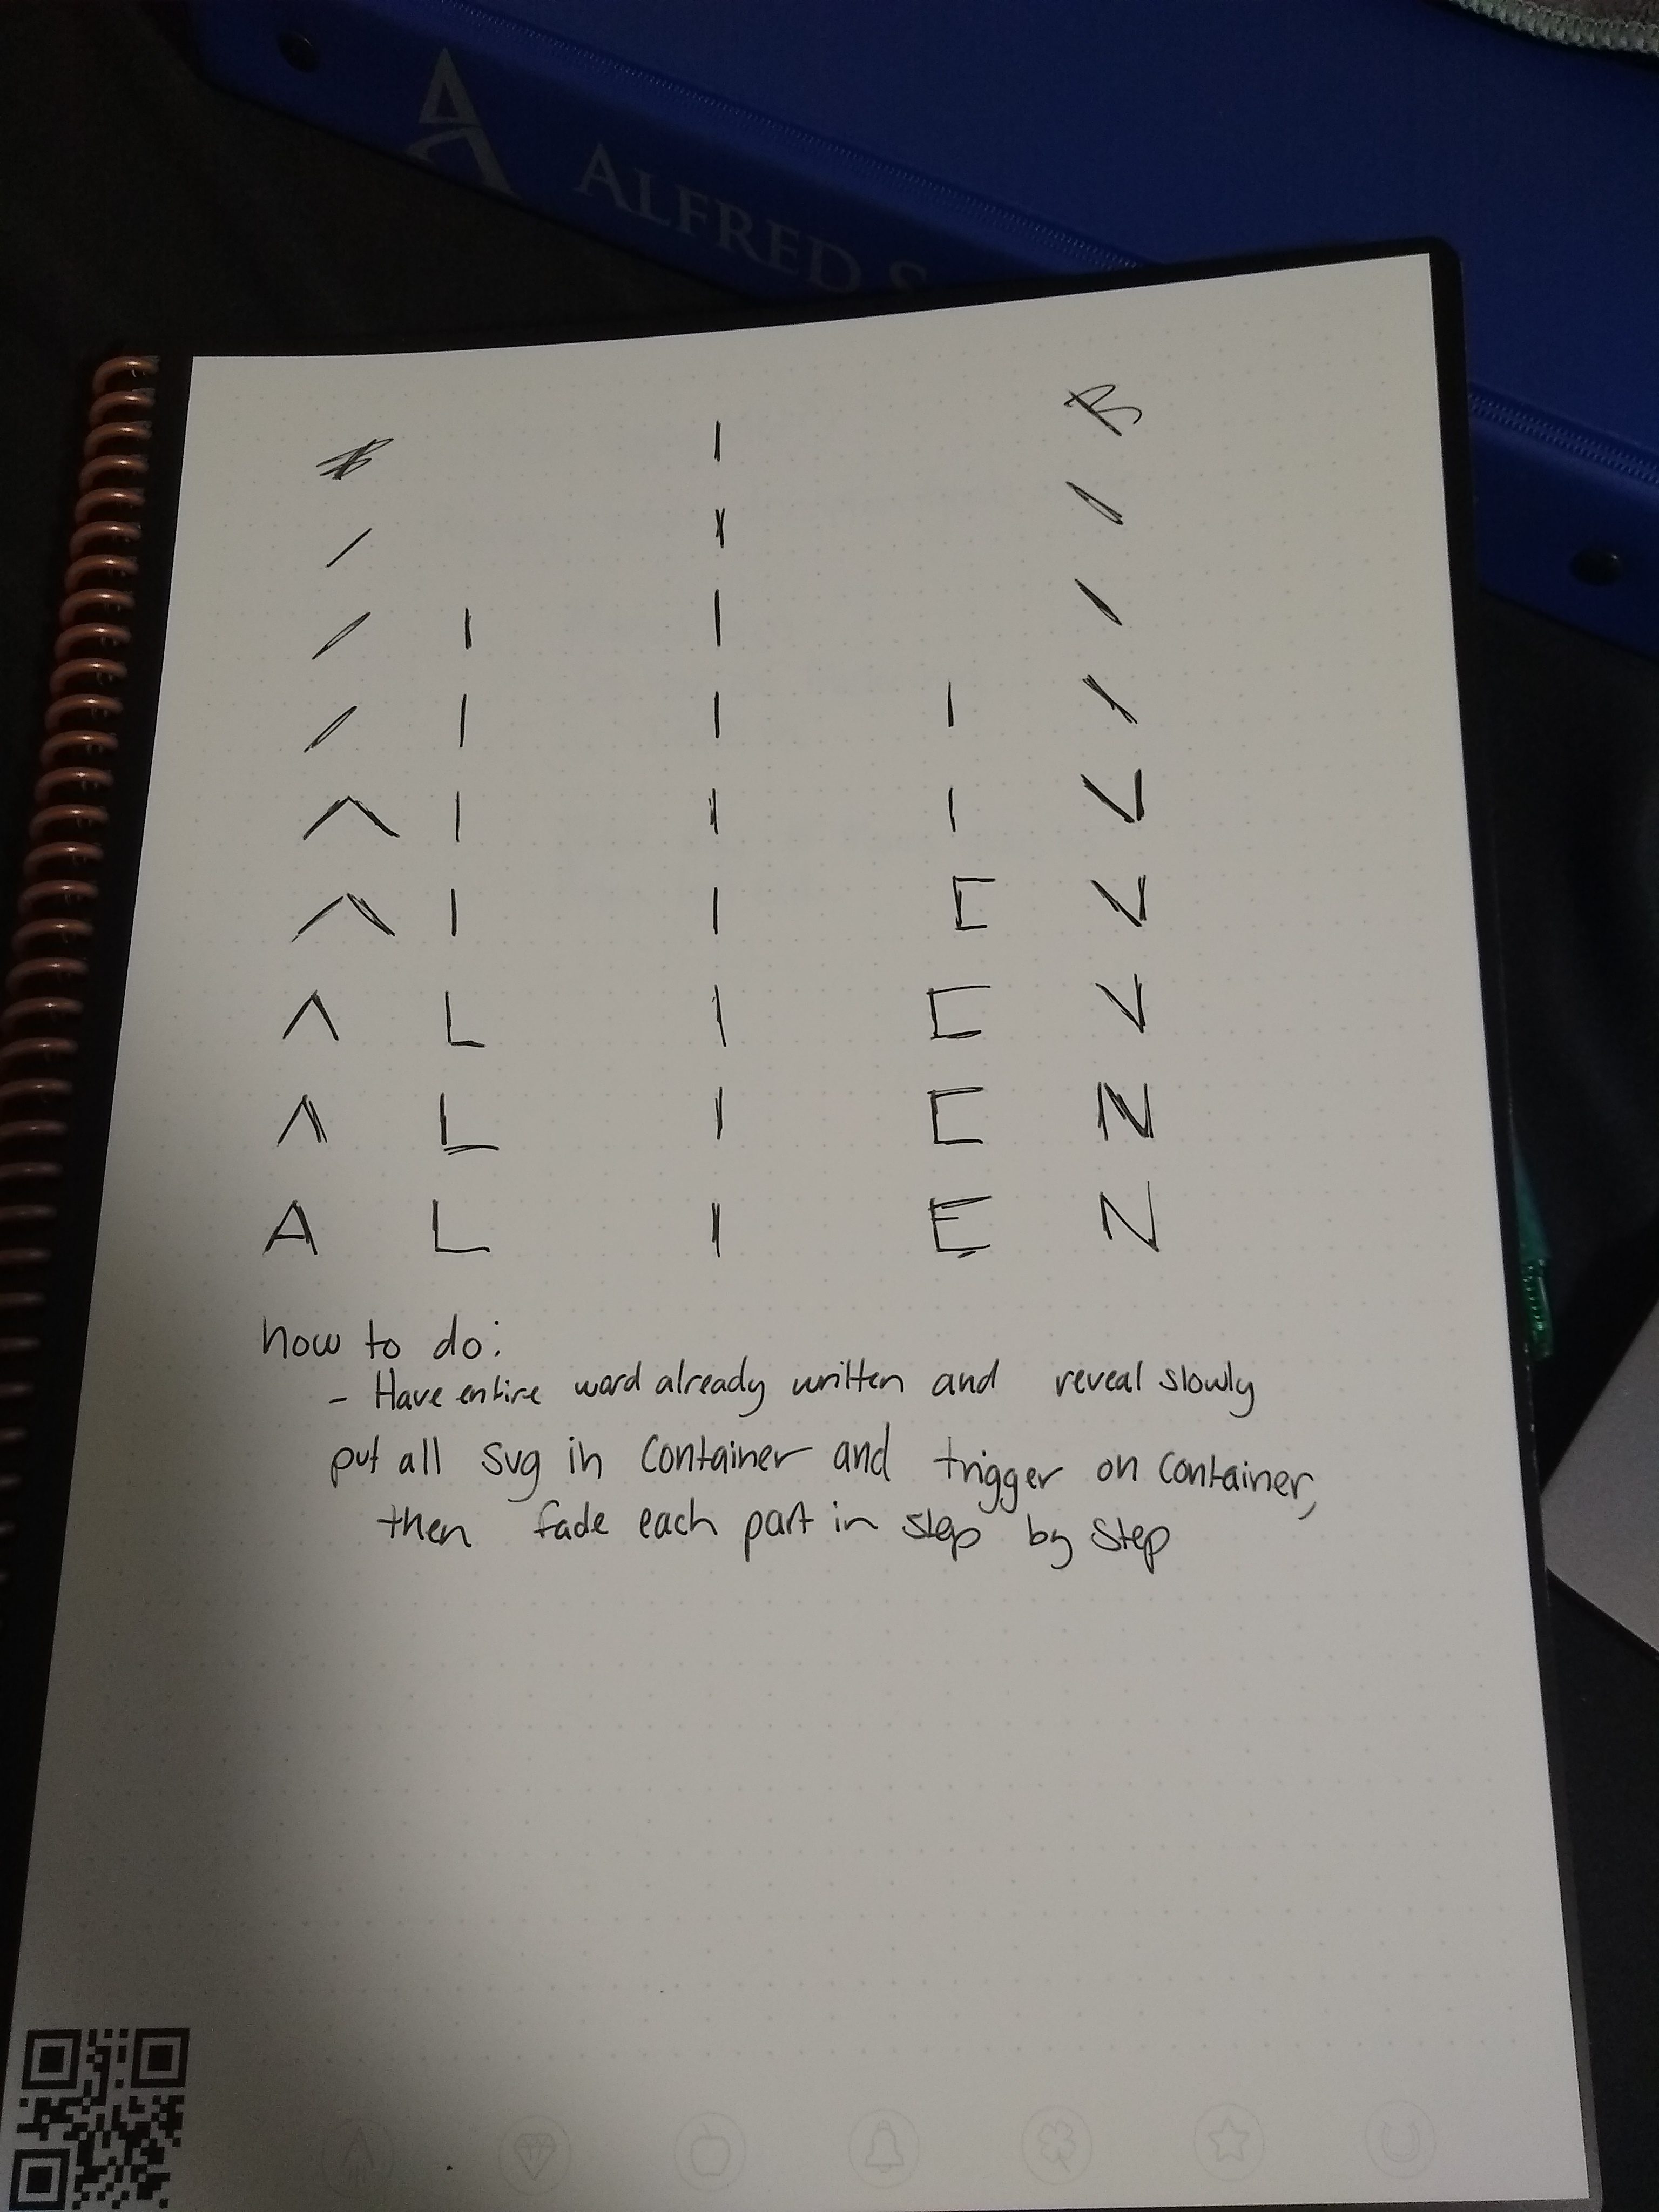 ALFRED S
I
I
I I
I I I
I I I
I I E V
L I E V
L I E N
A L I E N
how to do:
- Have entire word already written and reveal slowly
put all svg in container and trigger on container,
then fade each part in step by step